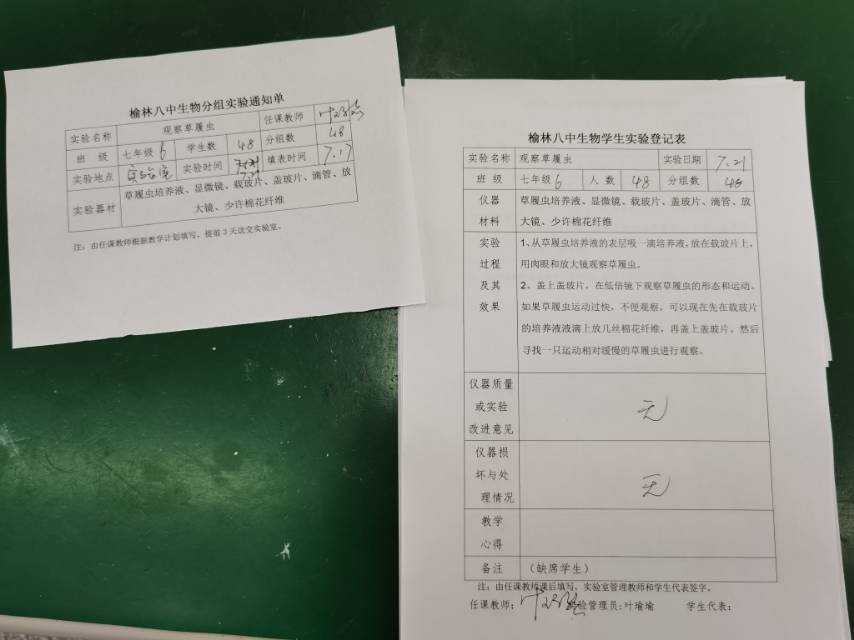 榆林八中生物分组实验通知单
实验名称 观察草履虫 任课教师
班 级 七年级6 学生数 48 分组数 48
实验地点 实验室 实验时间 7.21 填表时间 7.17
实验器材 草履虫培养液、显微镜、载玻片、盖玻片、滴管、放
大镜、少许棉花纤维
注：由任课教师根据教学计划填写，提前3天送交实验室。
榆林八中生物学生实验登记表
实验名称 观察草履虫 实验日期 7.21
班 级 七年级6 人 数 48 分组数 48
仪器 草履虫培养液、显微镜、载玻片、盖玻片、滴管、放
材料 大镜、少许棉花纤维
实验 1、从草履虫培养液的表层吸一滴培养液，放在载玻片上，
过程 用肉眼和放大镜观察草履虫。
及其 2、盖上盖玻片，在低倍镜下观察草履虫的形态和运动、
效果 如果草履虫运动过快，不便观察，可以现在先在载玻片
的培养液液滴上放几丝棉花纤维，再盖上盖玻片，然后
寻找一只运动相对缓慢的草履虫进行观察。
仪器质量
或实验 无
改进意见
仪器损
坏与处 无
理情况
教学
心得
备注 （缺席学生）
注：由任课教师课后填写，实验室管理教师和学生代表签字。
任课教师： 验管理员:叶瑜瑜 学生代表：